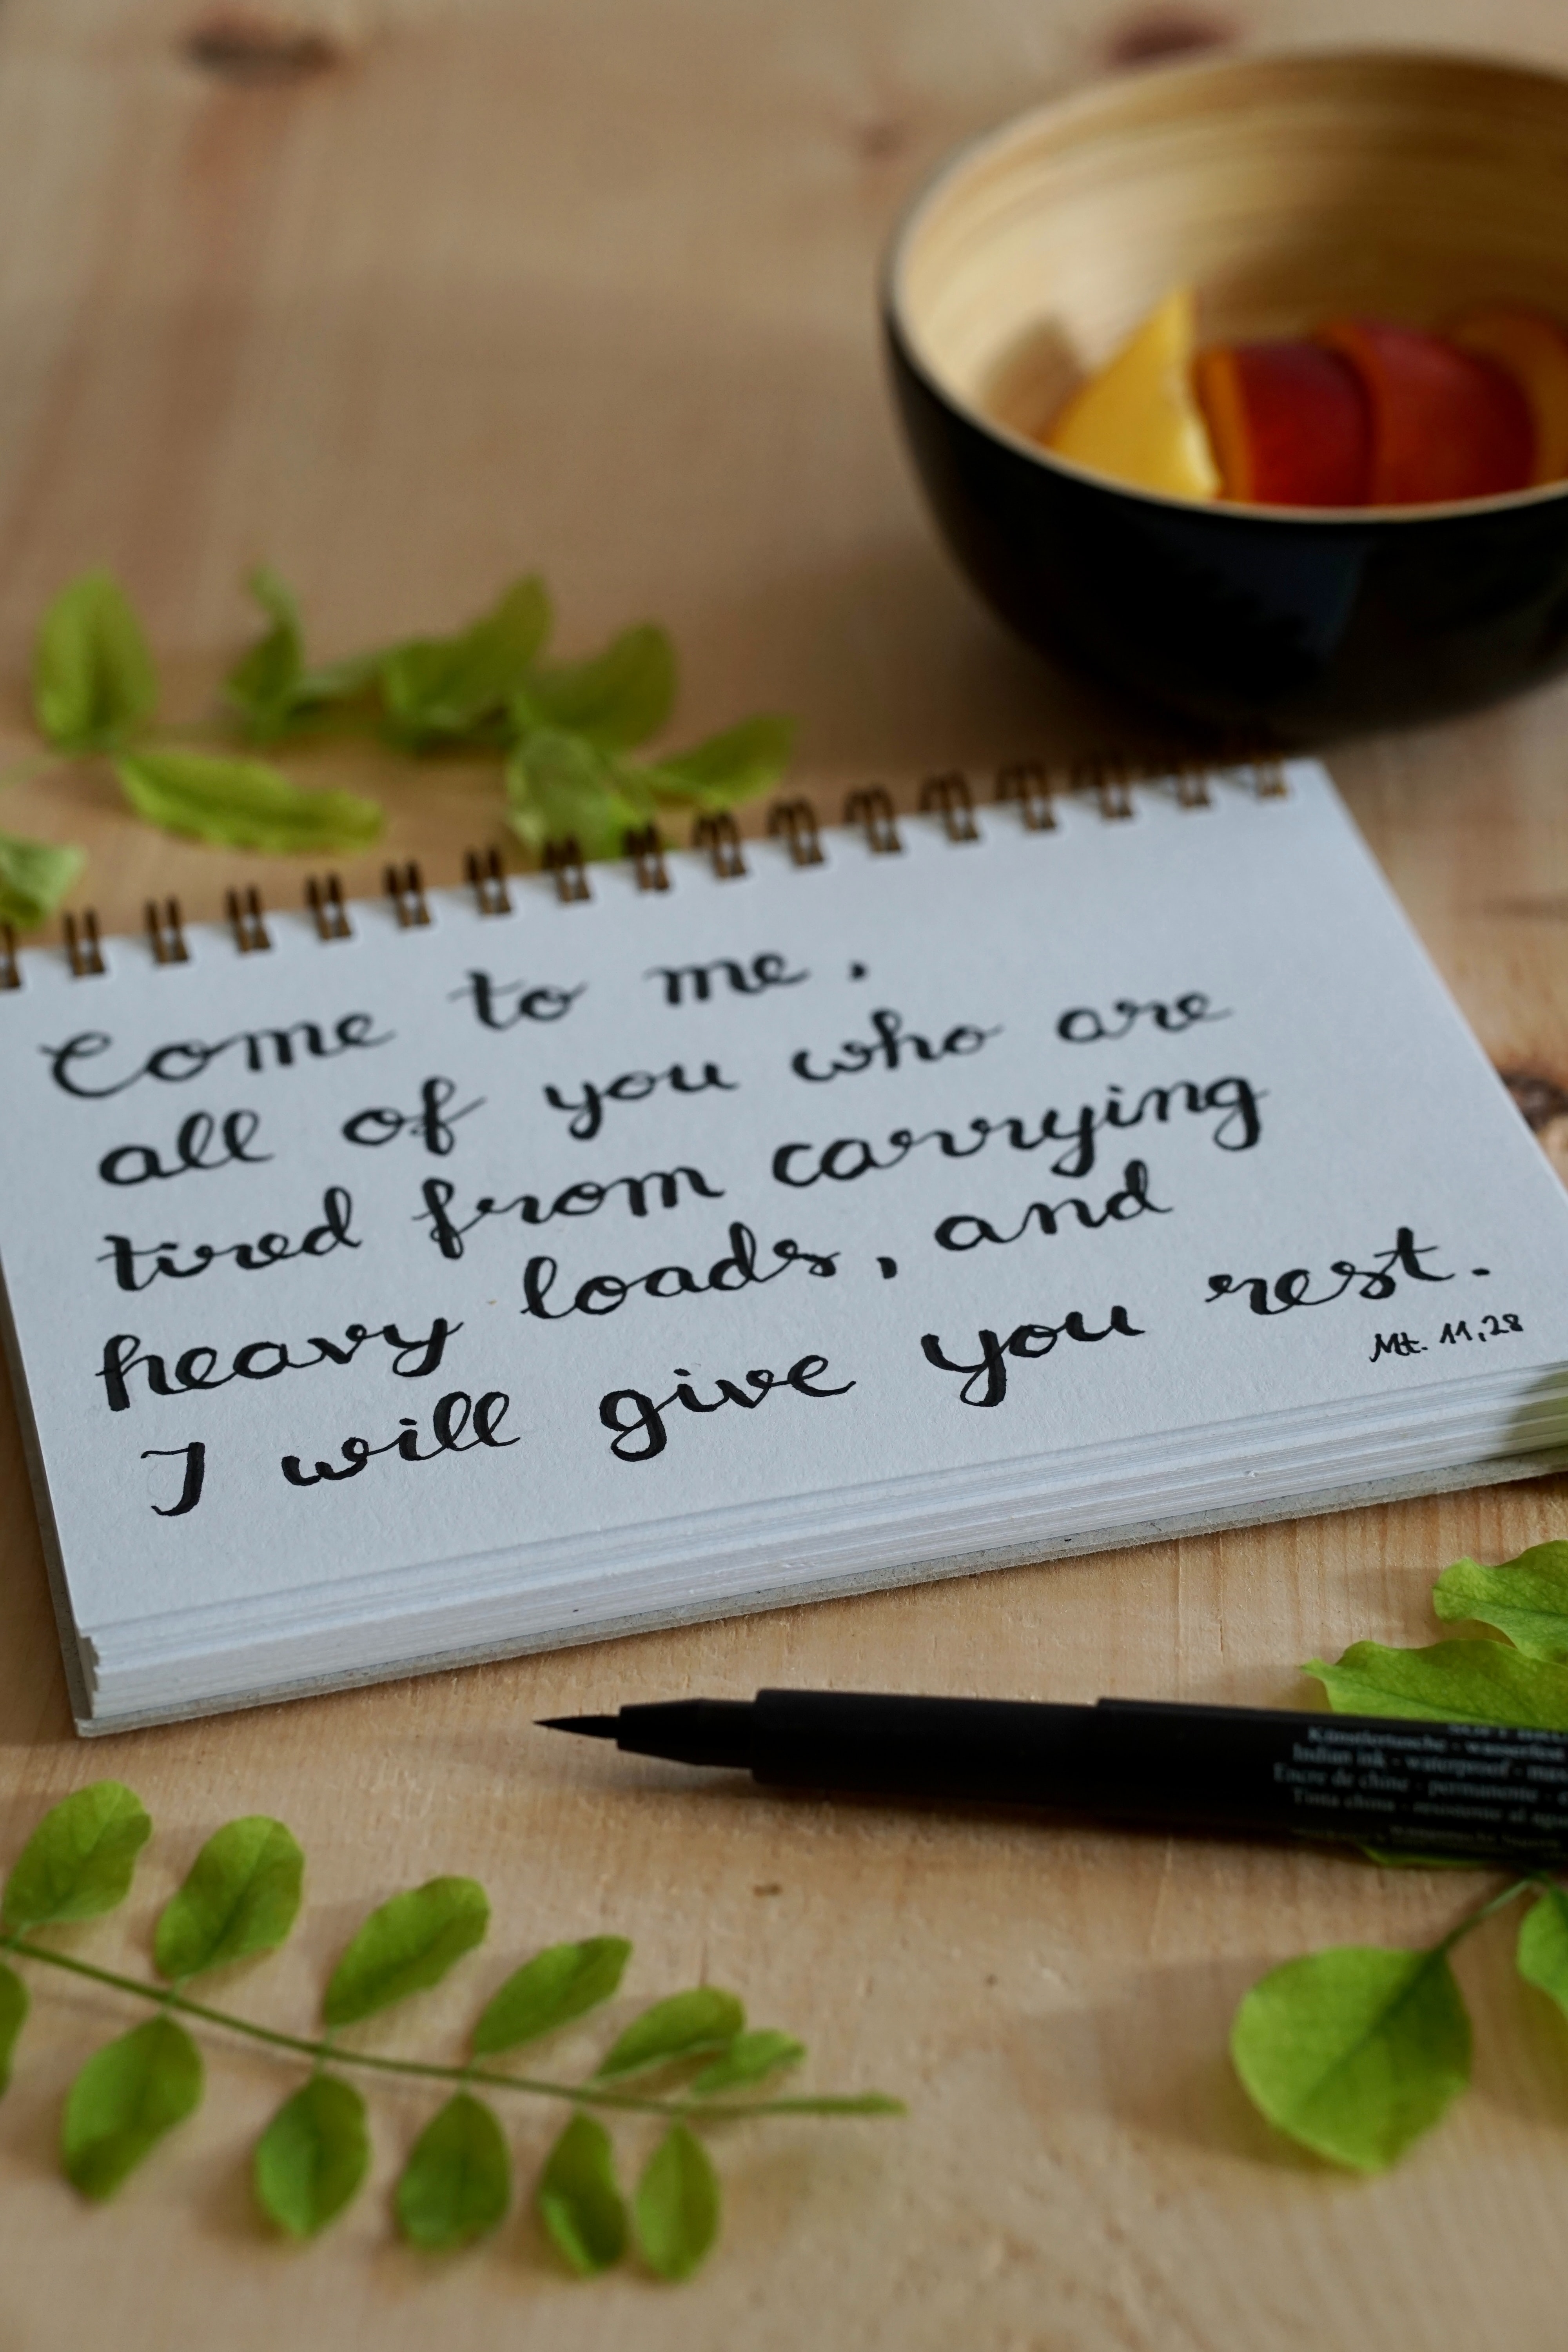 Come to me,
all of you who are
tired from carrying
heavy loads, and
I will give you rest.
Mt. 11,28
Künstlertusche - wasserfest
Indian ink - waterproof
Encre de chine - permanente
Tinta china - resistente al